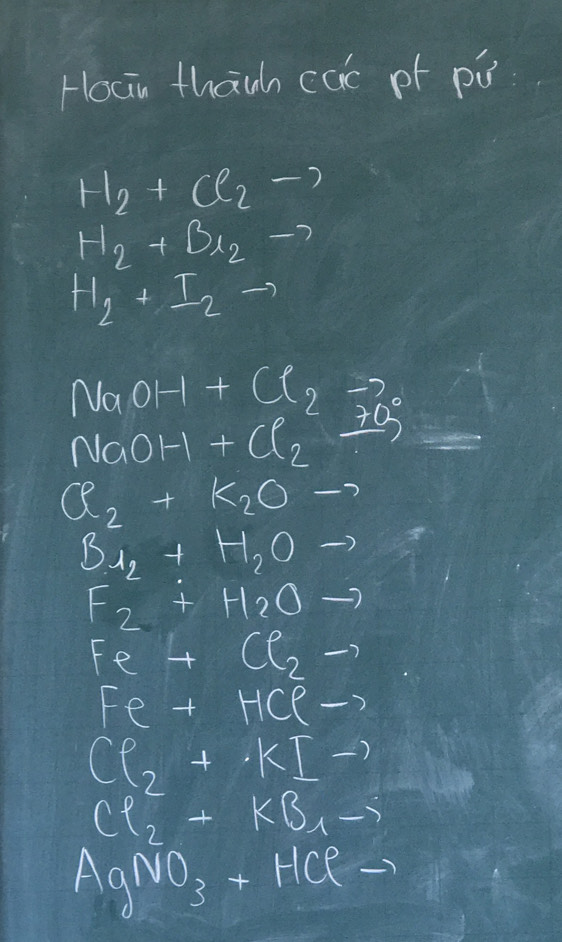 Hoàn thành các pt pứ:
H₂ + Cl₂ →
H₂ + Br₂ →
H₂ + I₂ →
NaOH + Cl₂ →
NaOH + Cl₂ 70° →
Cl₂ + K₂O →
Br₂ + H₂O →
F₂ + H₂O →
Fe + Cl₂ →
Fe + HCl →
Cl₂ + KI →
Cl₂ + KBr →
AgNO₃ + HCl →